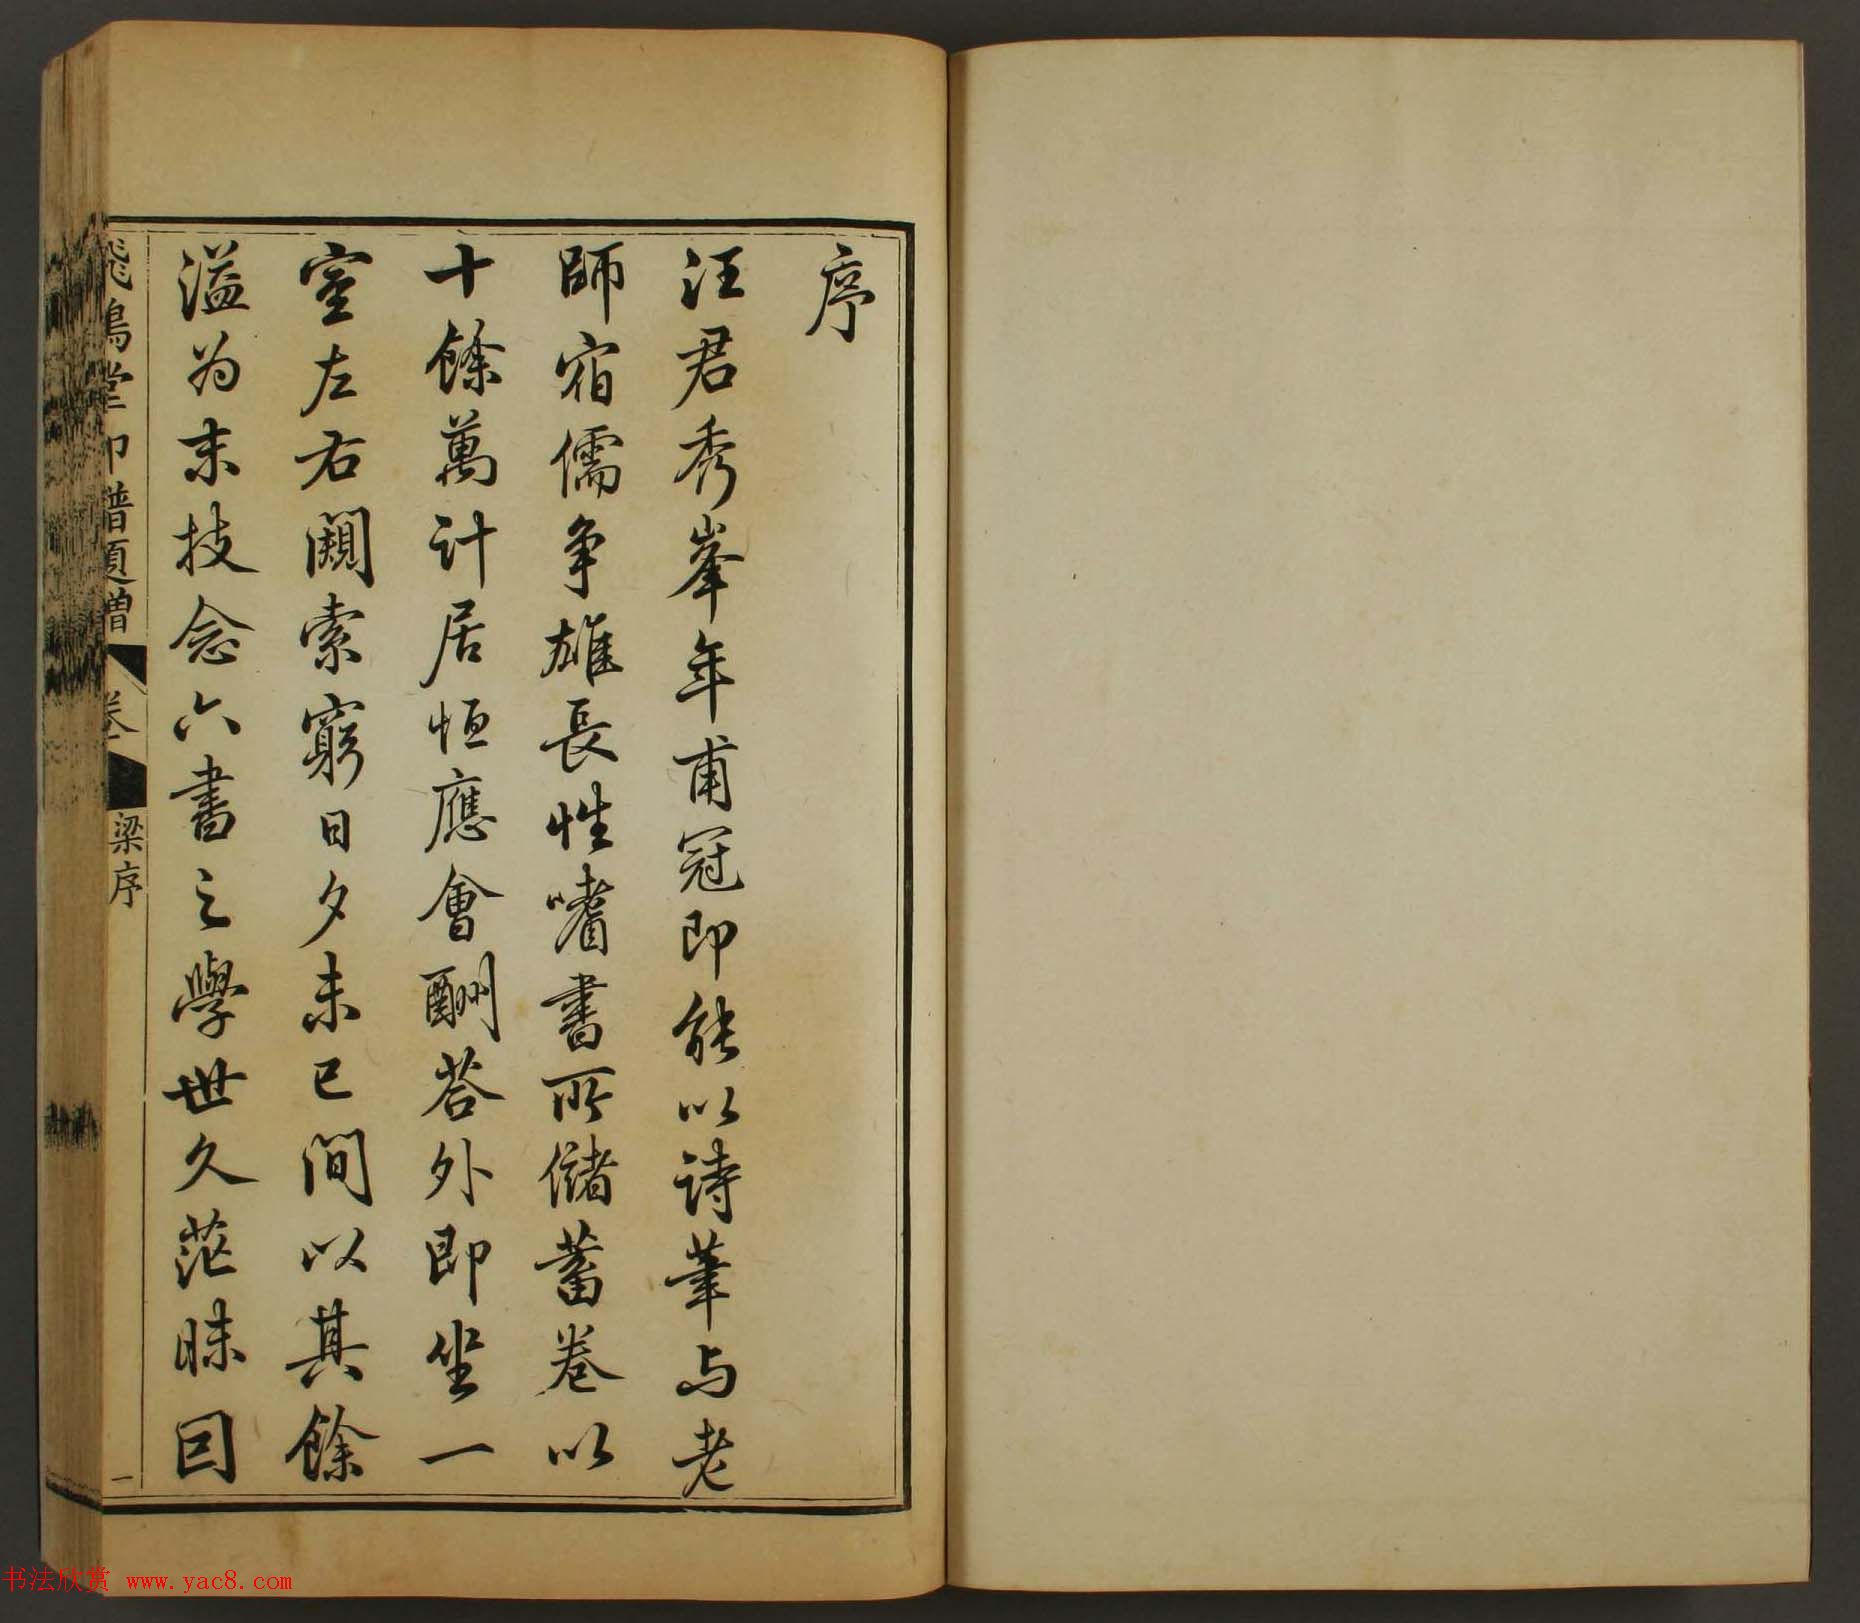 序
汪君秀峯年甫冠即能以詩筆与老
師宿儒爭雄長性嗜書所儲蓄卷以
十餘萬計居恒應會酬荅外即坐一
室左右闚索窮日夕未已間以其餘
溢为末技念六書之學世久茫昧因
飛鴻堂印譜題贈
卷一
梁序
一
书法欣赏 www.yac8.com